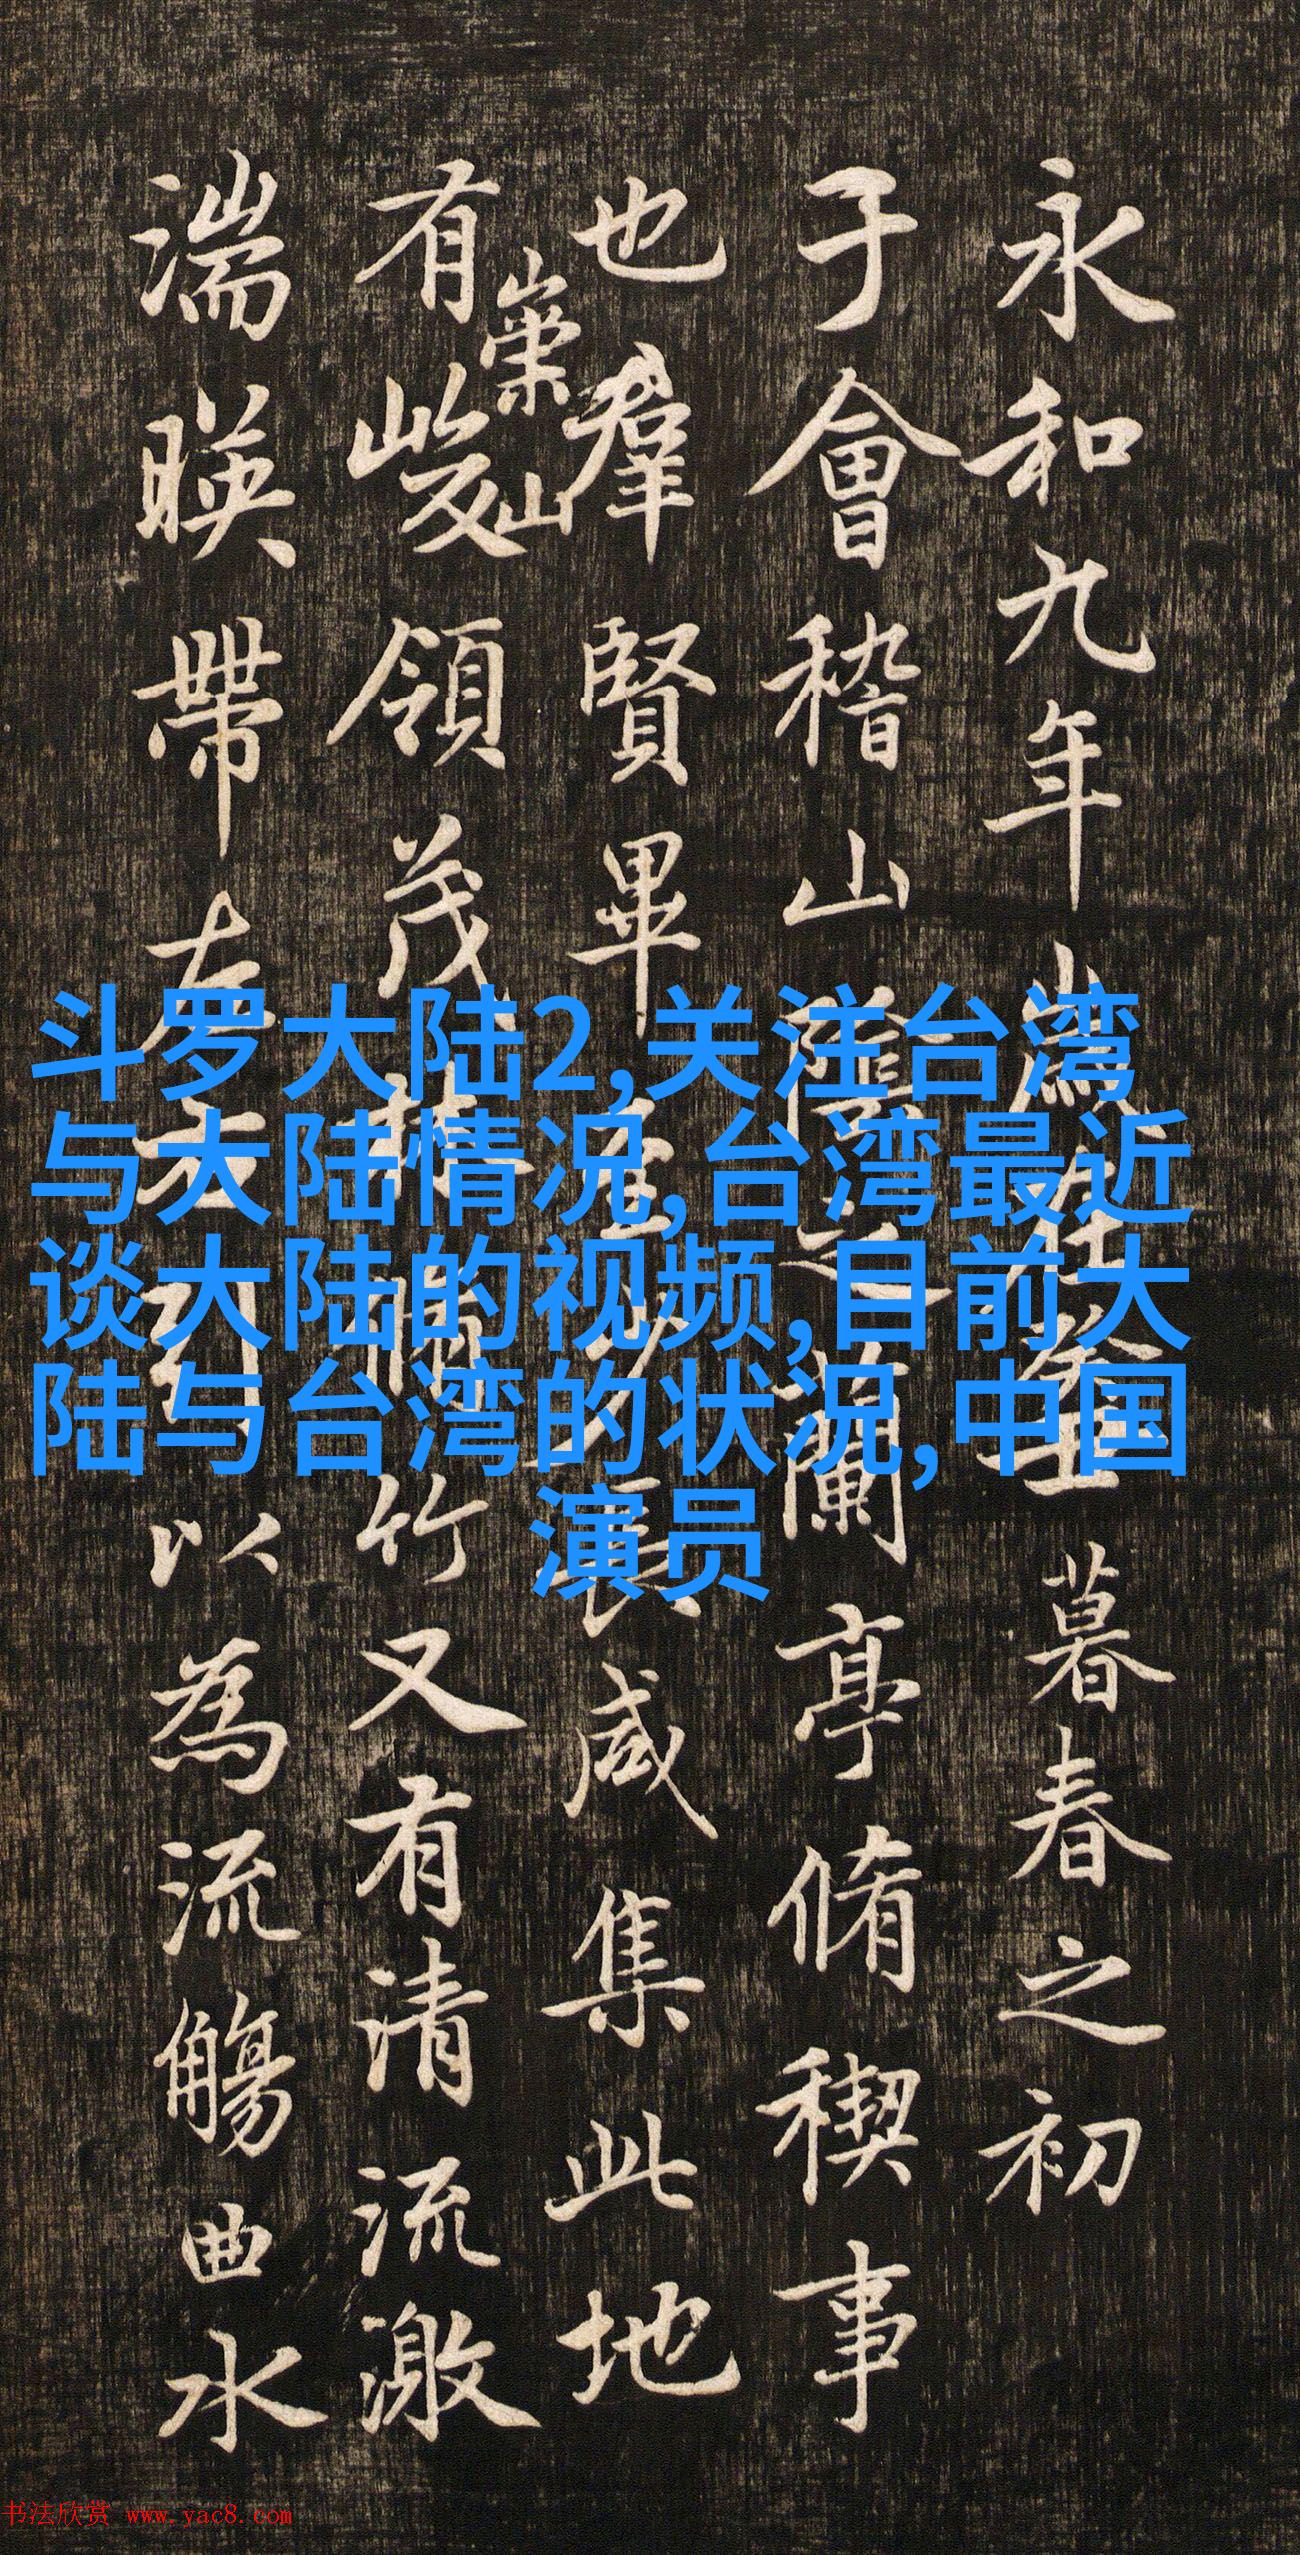 永和九年歲在癸丑暮春之初
于會稽山陰之蘭亭脩稧事
也羣賢畢至少長咸集此地
有崇山峻領茂林脩竹又有清流激
湍暎帶左右引以為流觴曲水
斗罗大陆2,关注台湾
与大陆情况,台湾最近
谈大陆的视频,目前大
陆与台湾的状况,中国
演员
书法欣赏 www.yac8.com